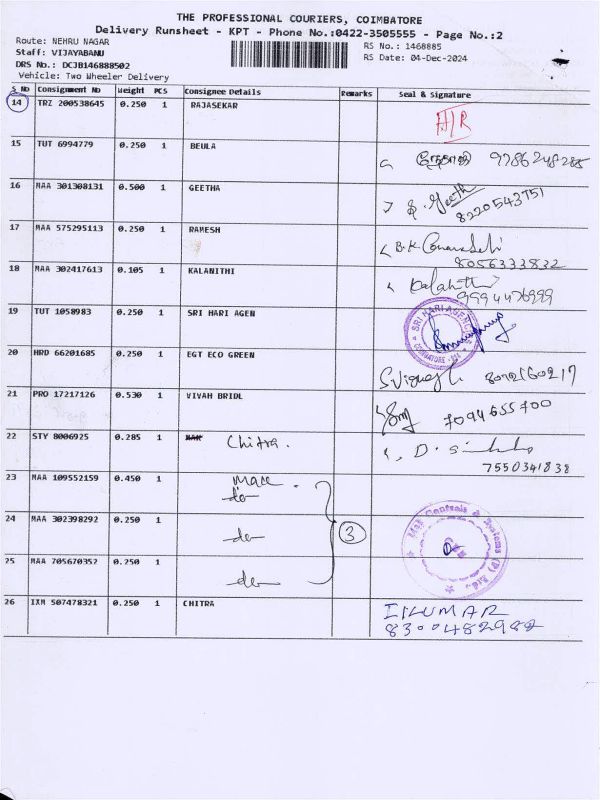 THE PROFESSIONAL COURIERS, COIMBATORE
Delivery Runsheet - KPT - Phone No.:0422-3505555 - Page No.:2
Route: NEHRU NAGAR
RS No.: 1468885
Staff: VIJAYABANU
RS Date: 04-Dec-2024
DRS No.: DCJB146888502
Vehicle: Two Wheeler Delivery
S No Consignment No Weight PCS Consignee Details Remarks Seal & Signature
14 TRZ 200538645 0.250 1 RAJASEKAR
15 TUT 6994779 0.250 1 BEULA 9786248285
16 MAA 301308131 0.500 1 GEETHA Geeth
8220543751
17 MAA 575295113 0.250 1 RAMESH B.K.
8056333832
18 MAA 302417613 0.105 1 KALANITHI Kalanithi
9994476999
19 TUT 1058983 0.250 1 SRI HARI AGEN SRI HARI AGENC COIMBATORE
20 HRD 66201685 0.250 1 EGT ECO GREEN
21 PRO 17217126 0.530 1 VIVAH BRIDL 7094655700
22 STY 8006925 0.285 1 Chitra. D.
7550341838
23 MAA 109552159 0.450 1
24 MAA 302398292 0.250 1 3 Controls & Systems (P) Ltd.
25 MAA 705670352 0.250 1
26 IXM 507478321 0.250 1 CHITRA
8300482982